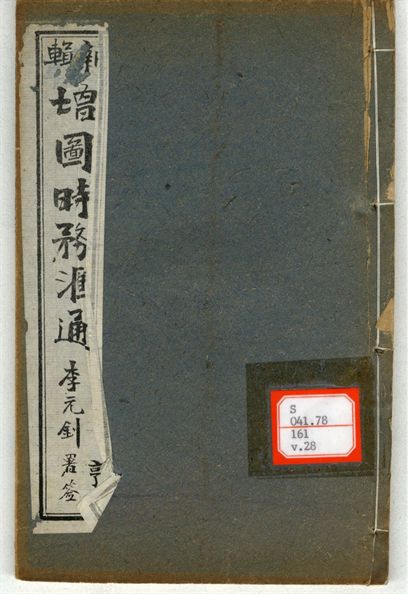 新輯
增圖時務滙通
李元釗署簽
亨
S
041.78
161
v.28